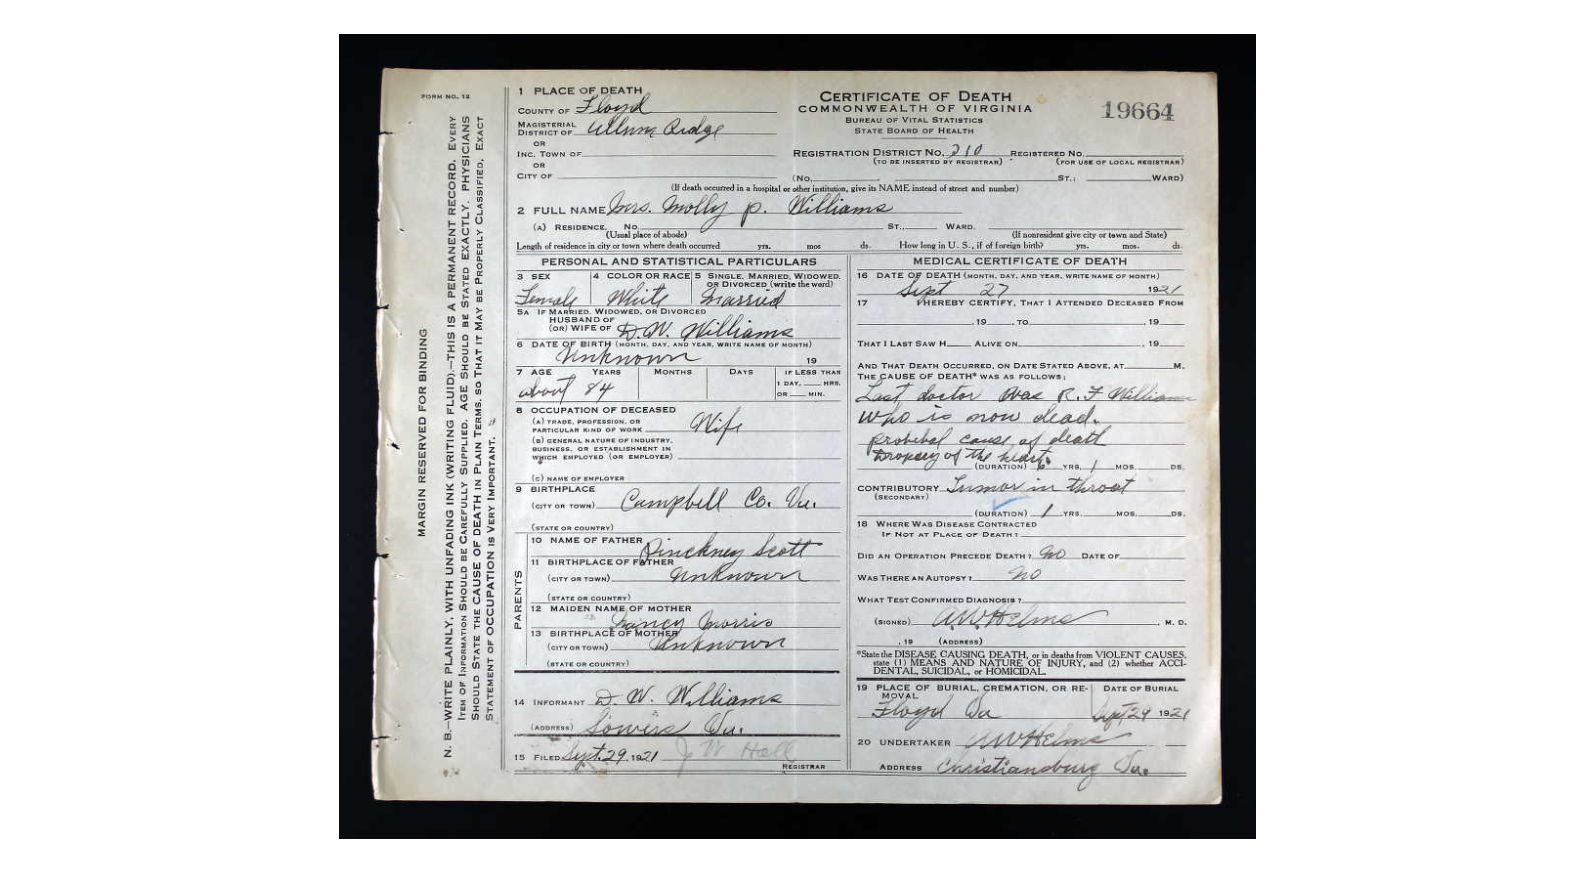 FORM NO. 12
MARGIN RESERVED FOR BINDING
N. B.—WRITE PLAINLY, WITH UNFADING INK (WRITING FLUID).—THIS IS A PERMANENT RECORD. EVERY
ITEM OF INFORMATION SHOULD BE CAREFULLY SUPPLIED. AGE SHOULD BE STATED EXACTLY. PHYSICIANS
SHOULD STATE THE CAUSE OF DEATH IN PLAIN TERMS, SO THAT IT MAY BE PROPERLY CLASSIFIED. EXACT
STATEMENT OF OCCUPATION IS VERY IMPORTANT.
1 PLACE OF DEATH
COUNTY OF Floyd
MAGISTERIAL
DISTRICT OF Alum Ridge
OR
INC. TOWN OF
OR
CITY OF
CERTIFICATE OF DEATH
COMMONWEALTH OF VIRGINIA
BUREAU OF VITAL STATISTICS
STATE BOARD OF HEALTH
19664
REGISTRATION DISTRICT NO. 310 REGISTERED NO.
(TO BE INSERTED BY REGISTRAR) (FOR USE OF LOCAL REGISTRAR)
(NO. ST.; WARD)
(If death occurred in a hospital or other institution, give its NAME instead of street and number)
2 FULL NAME Mrs. Molly P. Williams
(A) RESIDENCE. No ST., WARD.
(Usual place of abode) (If nonresident give city or town and State)
Length of residence in city or town where death occurred yrs. mos ds. How long in U. S., if of foreign birth? yrs. mos. ds.
PERSONAL AND STATISTICAL PARTICULARS
3 SEX 4 COLOR OR RACE 5 SINGLE, MARRIED, WIDOWED,
OR DIVORCED (write the word)
Female White Married
5A IF MARRIED, WIDOWED, OR DIVORCED
HUSBAND OF
(OR) WIFE OF D. W. Williams
6 DATE OF BIRTH (MONTH, DAY, AND YEAR, WRITE NAME OF MONTH)
Unknown 19
7 AGE YEARS MONTHS DAYS IF LESS THAN
1 DAY, HRS.
OR MIN.
about 84
8 OCCUPATION OF DECEASED
(A) TRADE, PROFESSION, OR
PARTICULAR KIND OF WORK Wife
(B) GENERAL NATURE OF INDUSTRY,
BUSINESS, OR ESTABLISHMENT IN
WHICH EMPLOYED (OR EMPLOYER)
(C) NAME OF EMPLOYER
9 BIRTHPLACE
(CITY OR TOWN) Campbell Co. Va.
(STATE OR COUNTRY)
PARENTS
10 NAME OF FATHER Pinckney Scott
11 BIRTHPLACE OF FATHER
(CITY OR TOWN) Unknown
(STATE OR COUNTRY)
12 MAIDEN NAME OF MOTHER
Nancy Morris
13 BIRTHPLACE OF MOTHER
(CITY OR TOWN) Unknown
(STATE OR COUNTRY)
14 INFORMANT D. W. Williams
(ADDRESS) Sowers Va.
15 FILED Sept. 29, 1921 J W Hall
REGISTRAR
MEDICAL CERTIFICATE OF DEATH
16 DATE OF DEATH (MONTH, DAY, AND YEAR, WRITE NAME OF MONTH)
Sept 27 1921
17 I HEREBY CERTIFY, THAT I ATTENDED DECEASED FROM
, 19 , TO , 19
THAT I LAST SAW H ALIVE ON , 19
AND THAT DEATH OCCURRED, ON DATE STATED ABOVE, AT M.
THE CAUSE OF DEATH* WAS AS FOLLOWS:
Last doctor was R. F Williams
who is now dead.
probebal cause of death
Dropsey of the heart.
(DURATION) YRS. 1 MOS. DS.
CONTRIBUTORY Tumor in throat
(SECONDARY)
(DURATION) 1 YRS. MOS. DS.
18 WHERE WAS DISEASE CONTRACTED
IF NOT AT PLACE OF DEATH?
DID AN OPERATION PRECEDE DEATH? No DATE OF
WAS THERE AN AUTOPSY? No
WHAT TEST CONFIRMED DIAGNOSIS?
(SIGNED) A.W. Helms M. D.
, 19 (ADDRESS)
*State the DISEASE CAUSING DEATH, or in deaths from VIOLENT CAUSES,
state (1) MEANS AND NATURE OF INJURY, and (2) whether ACCI-
DENTAL, SUICIDAL, or HOMICIDAL.
19 PLACE OF BURIAL, CREMATION, OR RE- DATE OF BURIAL
MOVAL
Floyd Va Sept 29 1921
20 UNDERTAKER A.W. Helms
ADDRESS Christiansburg Va.